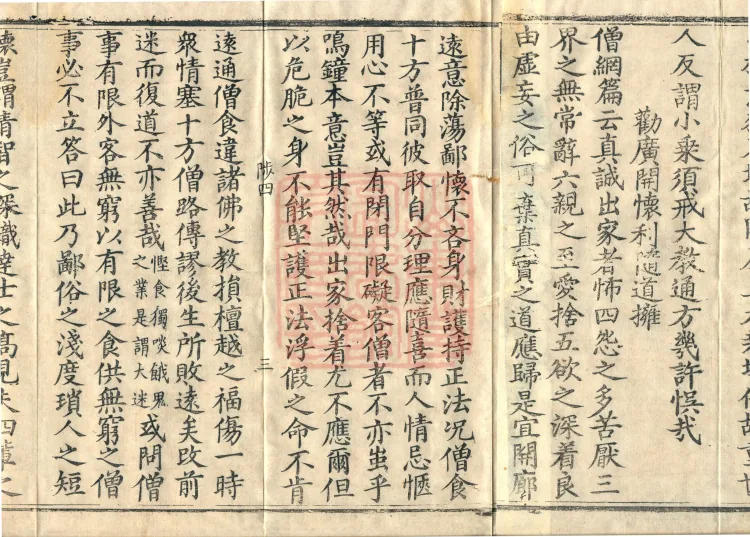 人反謂小乘須戒大教通方幾許悮哉
勸廣開懷利隨道擁
僧網篇云真誠出家者怖四怨之多苦厭三
界之無常辭六親之至愛捨五欲之深着良
由虛妄之俗可棄真實之道應歸是宜開廓
遠意除蕩鄙懷不吝身財護持正法况僧食
十方普同彼取自分理應隨喜而人情忌愜
用心不等或有閉門限礙客僧者不亦蚩乎
鳴鐘本意豈其然哉出家捨着尤不應爾但
以危脆之身不能堅護正法浮假之命不肯
陟四 三
遠通僧食違諸佛之教損檀越之福傷一時
衆情塞十方僧路傳謬後生所敗遠矣改前
迷而復道不亦善哉慳食獨啖餓鬼之業是謂大迷或問僧
事有限外客無窮以有限之食供無窮之僧
事必不立答曰此乃鄙俗之淺度瑣人之短
懷豈謂清智之深識達士之高見夫四輩之